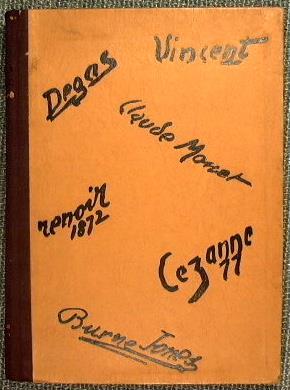 Vincent
Degas
Claude Monet
renoir
1872
Cezanne
77
Burne Jones